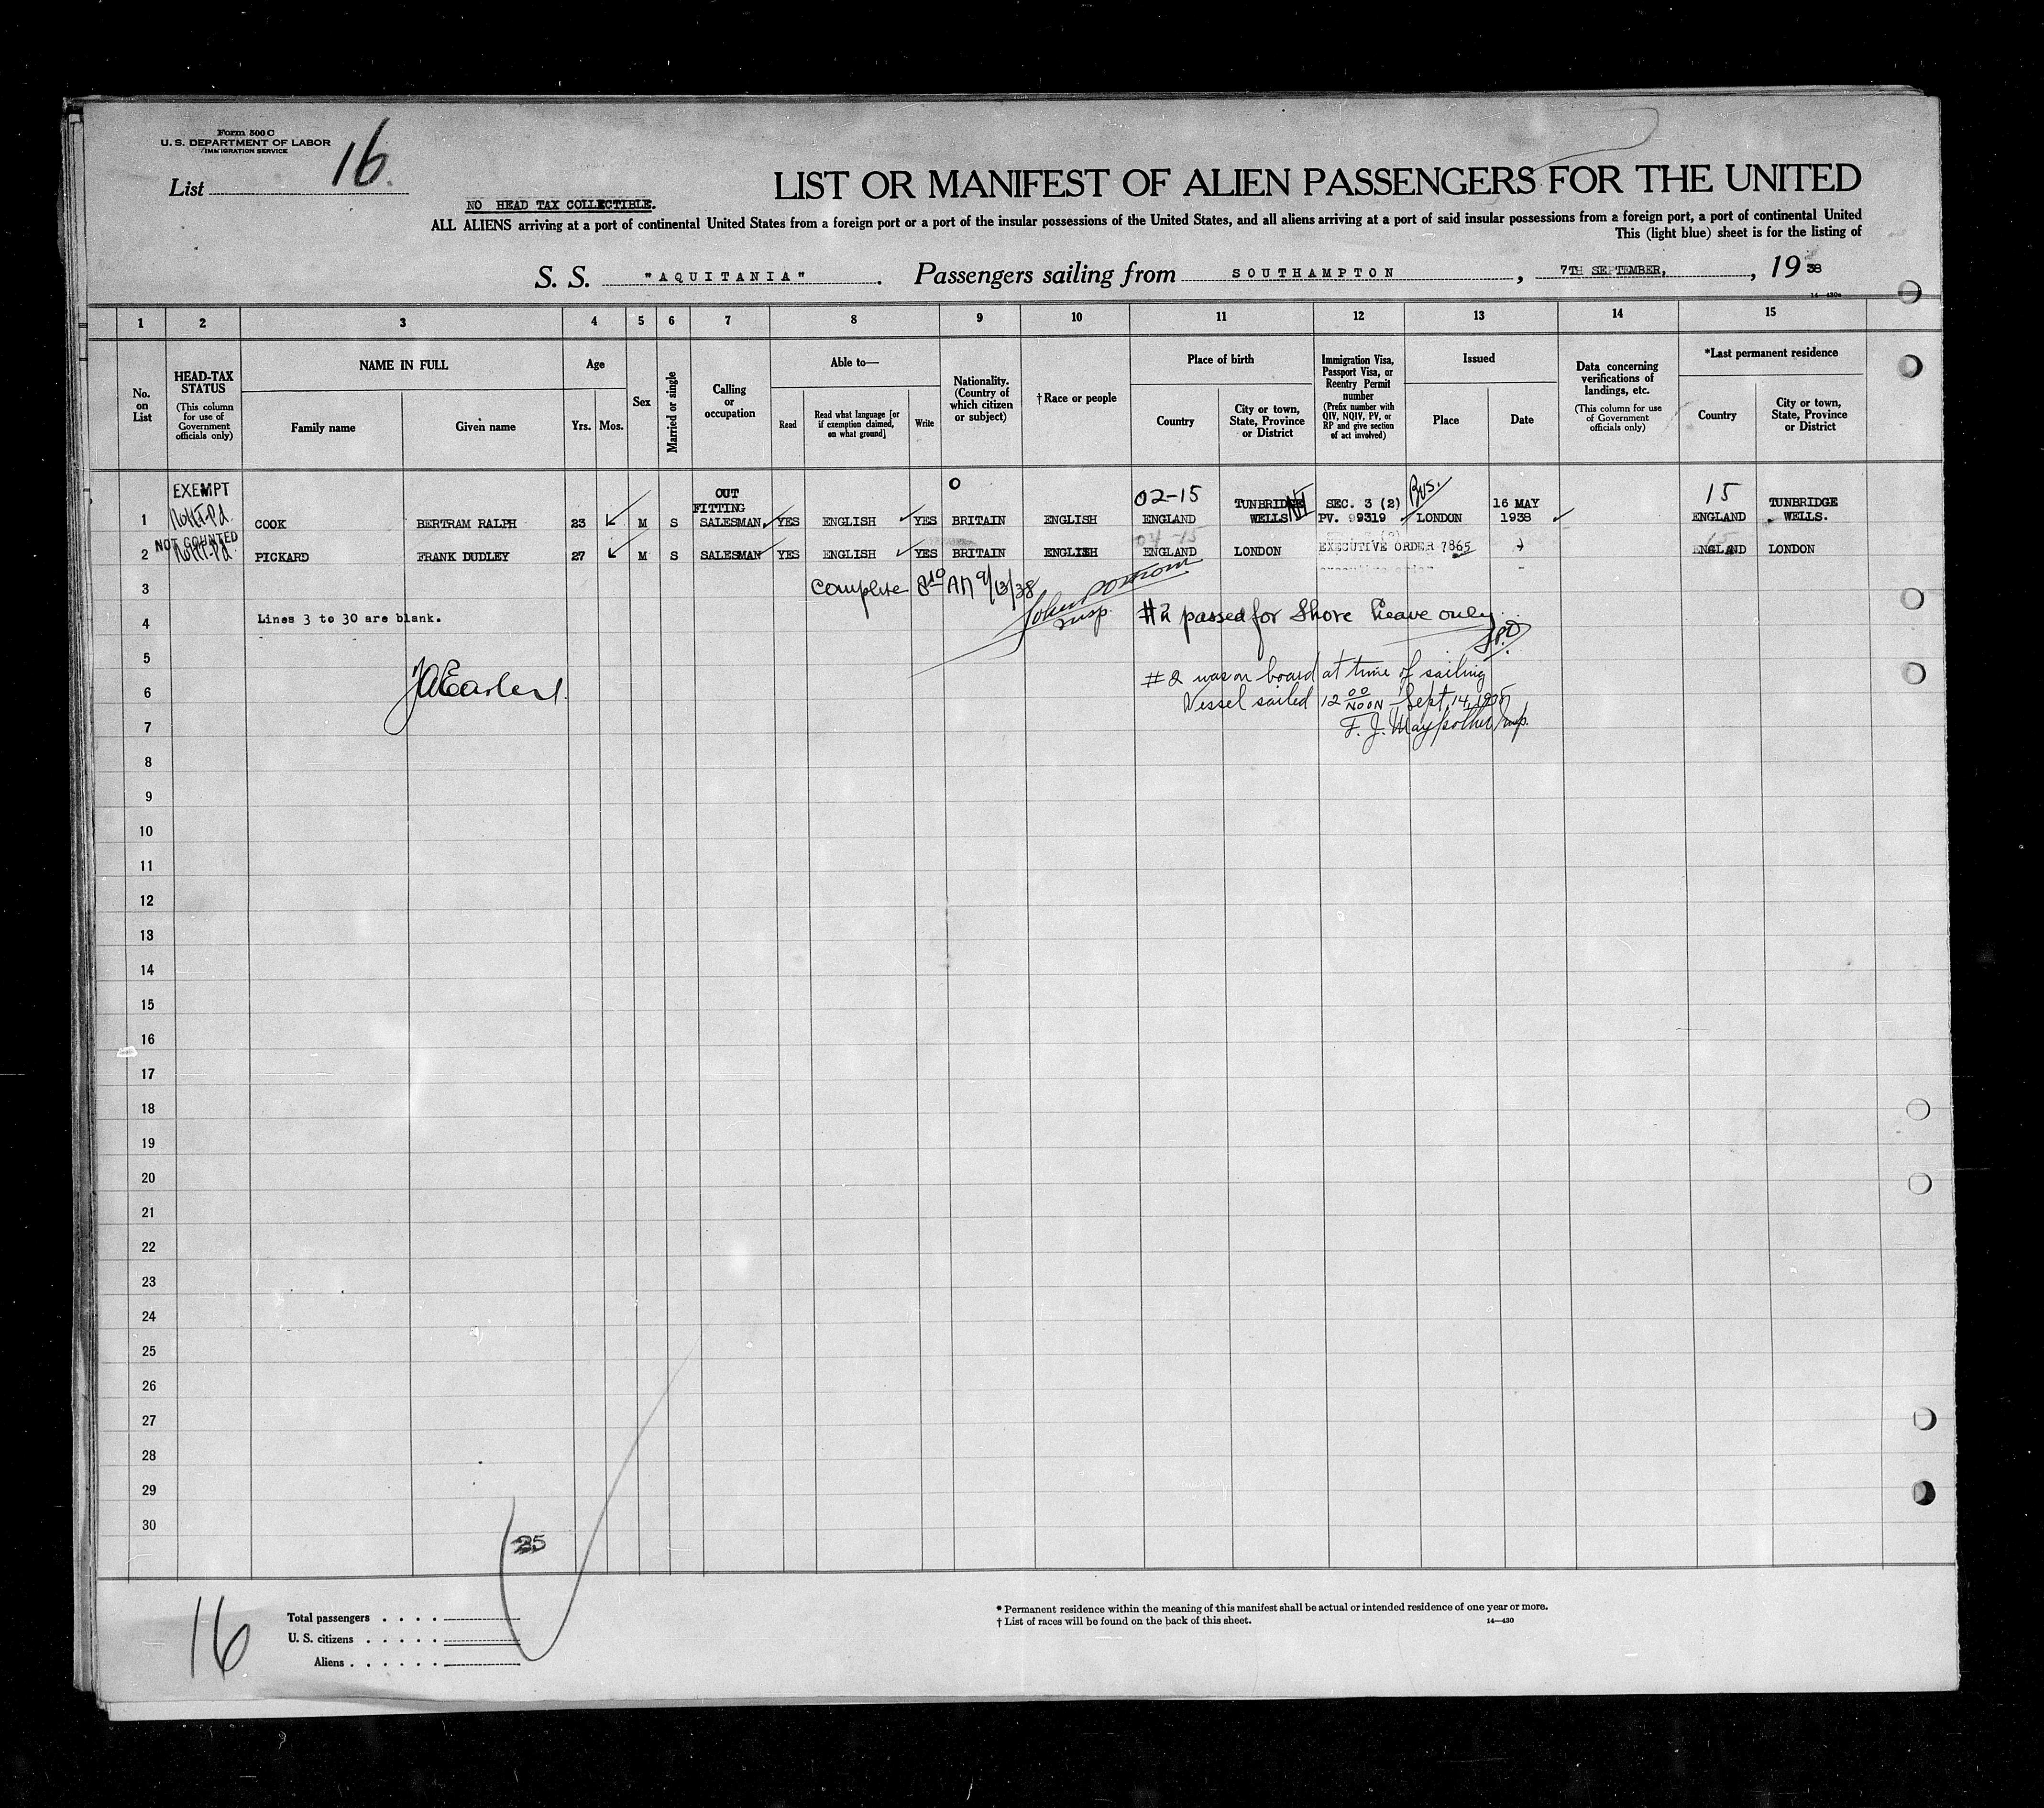 Form 500 C
U. S. DEPARTMENT OF LABOR
IMMIGRATION SERVICE
List 16.
LIST OR MANIFEST OF ALIEN PASSENGERS FOR THE UNITED
NO HEAD TAX COLLECTIBLE.
ALL ALIENS arriving at a port of continental United States from a foreign port or a port of the insular possessions of the United States, and all aliens arriving at a port of said insular possessions from a foreign port, a port of continental United
This (light blue) sheet is for the listing of
S. S. "AQUITANIA". Passengers sailing from SOUTHAMPTON, 7TH SEPTEMBER, , 1938
14—430a
1 2 3 4 5 6 7 8 9 10 11 12 13 14 15
No. on List
HEAD-TAX STATUS
(This column for use of Government officials only)
NAME IN FULL
Family name
Given name
Age
Yrs.
Mos.
Sex
Married or single
Calling or occupation
Able to—
Read
Read what language [or if exemption claimed, on what ground]
Write
Nationality. (Country of which citizen or subject)
†Race or people
Place of birth
Country
City or town, State, Province or District
Immigration Visa, Passport Visa, or Reentry Permit number
(Prefix number with QIV, NQIV, PV, or RP and give section of act involved)
Issued
Place
Date
Data concerning verifications of landings, etc.
(This column for use of Government officials only)
*Last permanent residence
Country
City or town, State, Province or District
EXEMPT OUT FITTING 0 02-15 TUNBRIDGE SEC. 3 (2) Bus. 16 MAY 15 TUNBRIDGE
1 COOK BERTRAM RALPH 23 M S SALESMAN YES ENGLISH YES BRITAIN ENGLISH ENGLAND WELLS PV. 99319 LONDON 1938 ENGLAND WELLS.
NOT COUNTED 04-15 15
2 PICKARD FRANK DUDLEY 27 M S SALESMAN YES ENGLISH YES BRITAIN ENGLISH ENGLAND LONDON EXECUTIVE ORDER 7865 ENGLAND LONDON
3 Complete 8 10 AM 9/13/38
Insp.
4 Lines 3 to 30 are blank. #2 passed for Shore Leave only
5
6 #2 was on board at time of sailing
Vessel sailed 12 00 NOON Sept, 14,
7 F. J. Insp.
8
9
10
11
12
13
14
15
16
17
18
19
20
21
22
23
24
25
26
27
28
29
30
25
16
Total passengers . . . .
U. S. citizens . . . . .
Aliens . . . . . .
* Permanent residence within the meaning of this manifest shall be actual or intended residence of one year or more.
† List of races will be found on the back of this sheet.
14—430